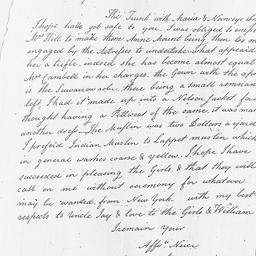 The Trunk with Maria & Nancys dre
I hope has got safe to you. I was obliged to emplo
Mrs Hill to make them Anne Maint being then too mu
engaged by the Actresses to undertake. What appeard
her a trifle, indeed she has become almost equal
Mrs Cambell in her charges. the Gown with the ap
is the Suwarrow robe, there being a small remnan
left, I had it made up into a Nelson Jacket for
thought having a Petticoat of the same, it was mak
another dress. The Muslin was two Dollars a yard
I prefeid Indian Muslin to Lappet muslin which
in general washes coarse & yellow. I hope I have
succeeded in pleasing the Girls, & that they will
call on me without ceremony for whatever
may be wanted from New York. with my best
respects to Uncle Jay & love to the Girls & William
I remain your
Affte Niece